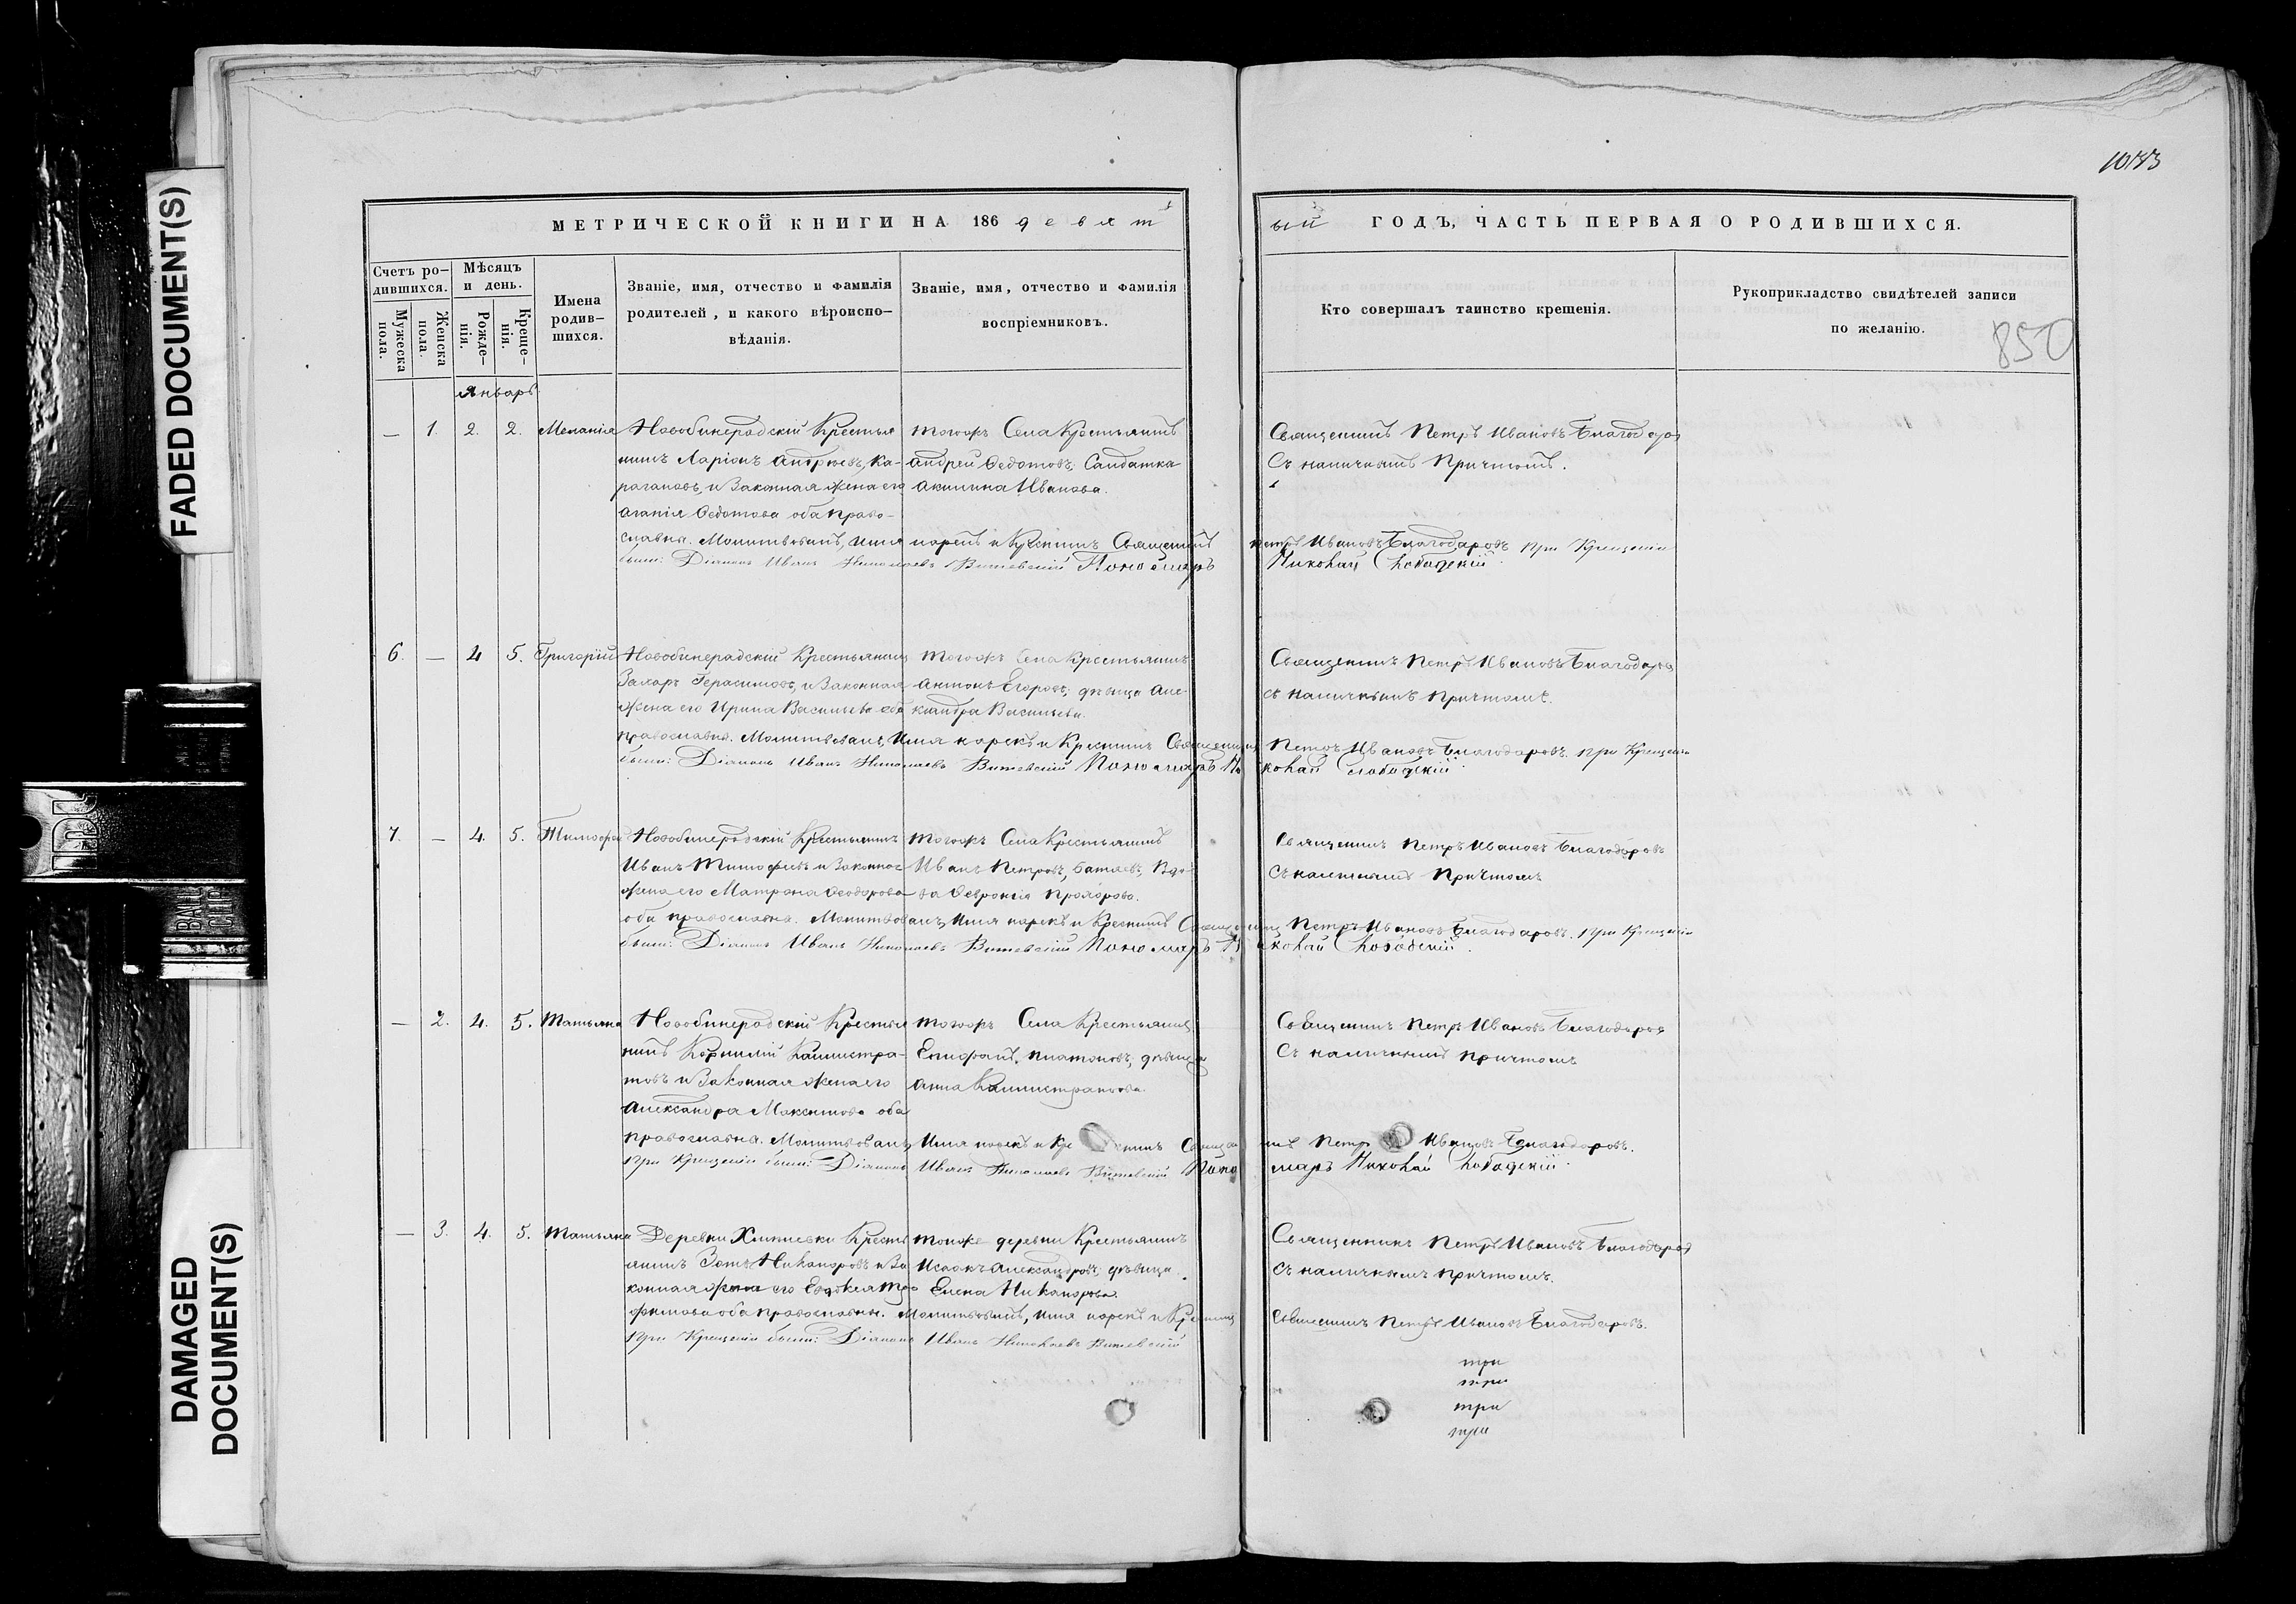 FADED DOCUMENT(S)
DAMAGED
DOCUMENT(S)
1033
850
МЕТРИЧЕСКОЙ КНИГИ НА 186 девят
ый ГОДЪ, ЧАСТЬ ПЕРВАЯ О РОДИВШИХСЯ.
Счетъ ро-
дившихся.
Мужеска
пола.
Женска
пола.
Мѣсяцъ
и день.
Рожде-
нія.
Креще-
нія.
Имена
родив-
шихся.
Званіе, имя, отчество и фамилія
родителей, и какого вѣроиспо-
вѣданія.
Званіе, имя, отчество и фамилія
воспріемниковъ.
Кто совершалъ таинство крещенія.
Рукоприкладство свидѣтелей записи
по желанію.
Январь
— 1. 2. 2. Меланія
Новобинарадскій Крестья
нинъ Ларіонъ Андреевъ, Ка-
рагановъ, и Законная жена его
Агапія Федотова оба право-
славны. Молитвовалъ, имя нарекъ и Крестилъ Священникъ Петръ Ивановъ Благодаровъ при Крещеніи
были: Діаконъ Иванъ Николаевъ Витевскій Пономарь Николай Слободскій.
тогожъ Села Крестьянинъ
Андрей Федотовъ; Салдатка
Акилина Иванова.
Священникъ Петръ Ивановъ Благодаров
Съ наличнымъ Причтомъ.
6. — 4 5. Григорій
Новобинарадскій Крестьянинъ
Захаръ Герасимовъ, и Законная
жена его Ирина Васильева оба
православны. Молитвовалъ, Имя нарекъ и Крестилъ Священникъ Петръ Ивановъ Благодаровъ. при Крещеніи
были: Діаконъ Иванъ Николаевъ Витевскій Пономарь Николай Слободскій.
тогожъ Села Крестьянинъ
Антонъ Егоровъ; дѣвица Але-
ксандра Васильева.
Священникъ Петръ Ивановъ Благодаров
съ наличнымъ причтомъ.
7. — 4. 5. Тимофей
Новобинарадскій Крестьянинъ
Иванъ Тимофеевъ и Законная
жена его Матрона Феодорова
оба православны. Молитвовалъ, Имя нарекъ и Крестилъ Священникъ Петръ Ивановъ Благодаровъ. при Крещеніи
были: Діаконъ Иванъ Николаевъ Витевскій Пономарь Николай Слободскій.
тогожъ Села Крестьянинъ
Иванъ Петровъ, Вдо-
ва Февронія Прохорова.
Священникъ Петръ Ивановъ Благодаровъ
Съ наличнымъ Причтомъ
— 2. 4. 5. Татьяна
Новобинарадскій Крестья
нинъ Корнилій Каллистра-
товъ и Законная жена его
Александра Максимова оба
православны. Молитвовалъ, Имя нарекъ и Крестилъ Священникъ Петръ Ивановъ Благодаровъ.
при Крещеніи были: Діаконъ Иванъ Николаевъ Витевскій Пономарь Николай Слободскій.
тогожъ Села Крестьянинъ
Епифанъ Платоновъ; дѣвица
Анна Каллистратова
Священникъ Петръ Ивановъ Благодаров
Съ наличнымъ причтомъ
— 3. 4. 5. Татьяна
Деревни Крестья
нинъ Зотъ Никаноровъ и За
конная жена его Евдокея Тро
фимова оба православны. Молитвовалъ, имя нарекъ и Крестилъ Священникъ Петръ Ивановъ Благодаровъ.
при Крещеніи были: Діаконъ Иванъ Николаевъ Витевскій
тойже деревни Крестьянинъ
Исаакъ Александровъ; дѣвица
Елена Никанорова.
Священникъ Петръ Ивановъ Благодаров
Съ наличнымъ причтомъ.
три
три
три
три